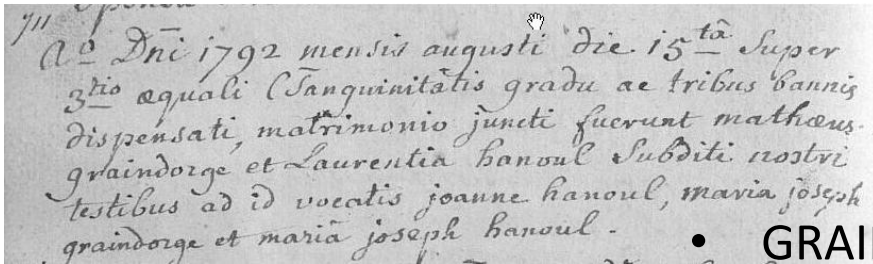 711
Ao Dni 1792 mensis augusti die 15tâ Super
3tio æquali Consanguinitatis gradu ac tribus bannis
dispensati, matrimonio juncti fuerunt mathæus
graindorge et Laurentia hanoul Subditi nostri
testibus ad id vocatis joanne hanoul, maria joseph
graindorge et mariâ joseph hanoul.
• GRAI